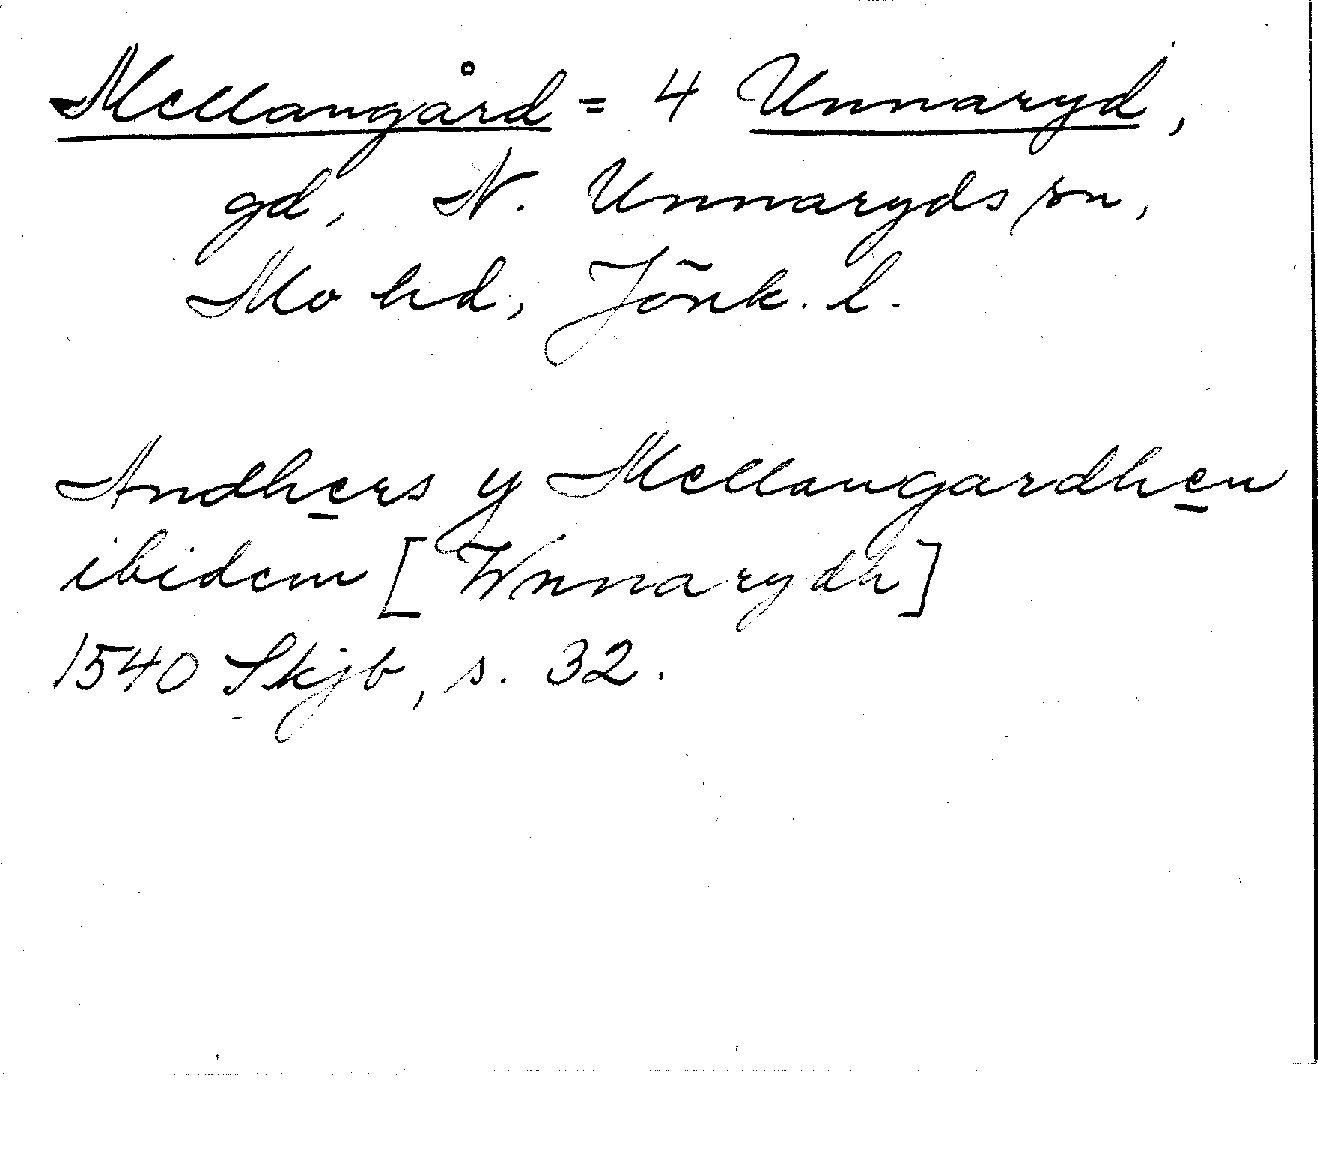 Mellangård = 4 Unnaryd,
gd, N. Unnaryds sn,
Mo hd, Jönk. l.
Andhers y Mellangardhen
ibidem [Wnnarydh]
1540 Skjb, s. 32.